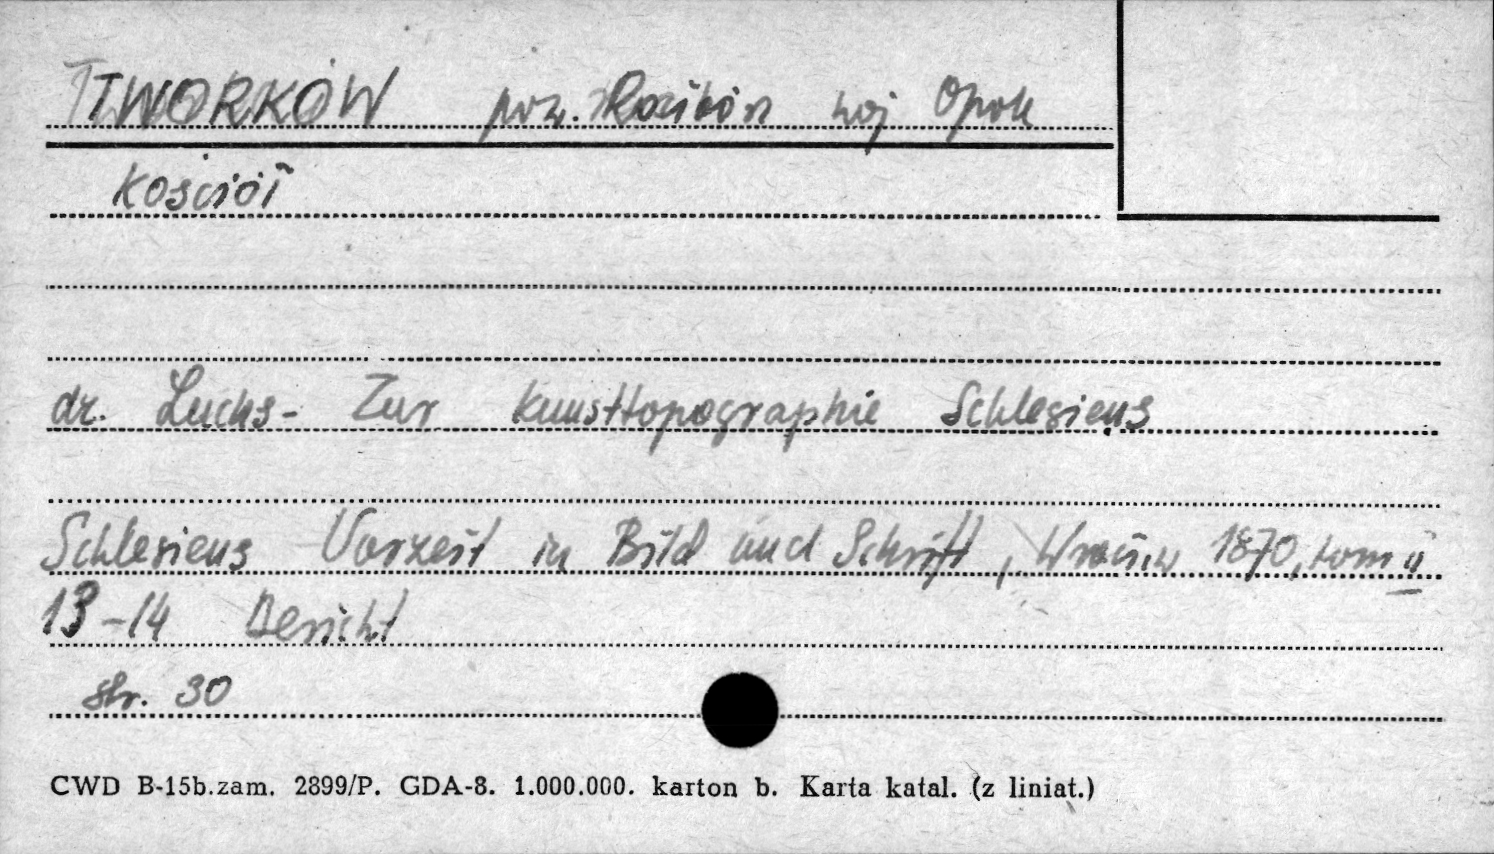 TWORKÓW pow. Racibórz woj Opole
Kościół
dr. Luchs - Zur Kunsttopographie Schlesiens
Schlesiens Vorzeit in Bild und Schrift, Wrocław 1870, tom II
13-14 Bericht
str. 30
CWD B-15b.zam. 2899/P. GDA-8. 1.000.000. karton b. Karta katal. (z liniat.)